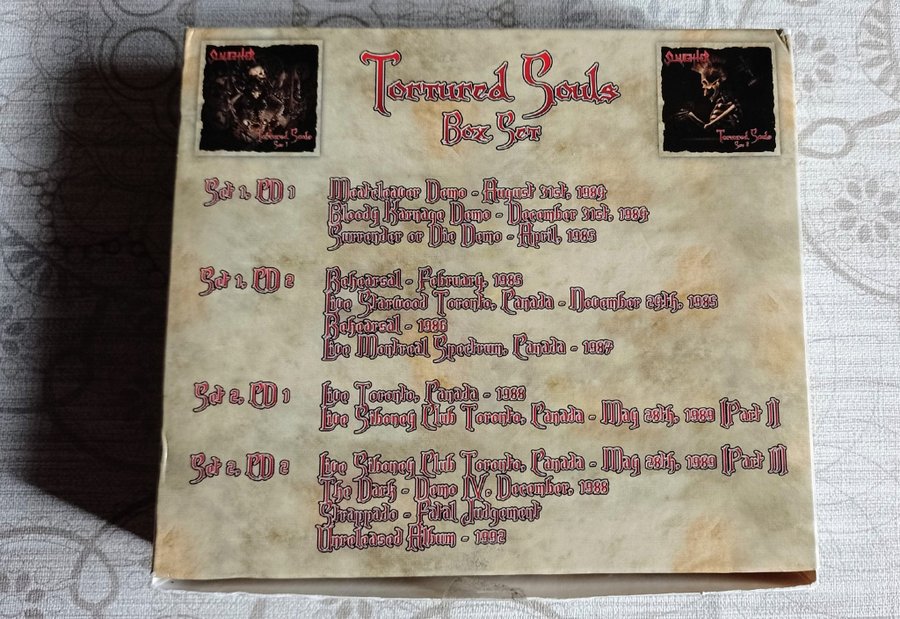 SLAUGHTER
Tortured Souls
Set I
Tortured Souls
Box Set
SLAUGHTER
Tortured Souls
Set II
Set 1, CD 1
Meatcleaver Demo - August 31st, 1984
Bloody Karnage Demo - December 31st, 1984
Surrender or Die Demo - April, 1985
Set 1, CD 2
Rehearsal - February, 1985
Live Starwood Toronto, Canada - November 29th, 1985
Rehearsal - 1986
Live Montreal Spectrum, Canada - 1987
Set 2, CD 1
Live Toronto, Canada - 1988
Live Siboney Club Toronto, Canada - May 28th, 1989 [Part I]
Set 2, CD 2
Live Siboney Club Toronto, Canada - May 28th, 1989 [Part II]
The Dark - Demo IV, December, 1988
Strappado - Fatal Judgement
Unreleased Album - 1992